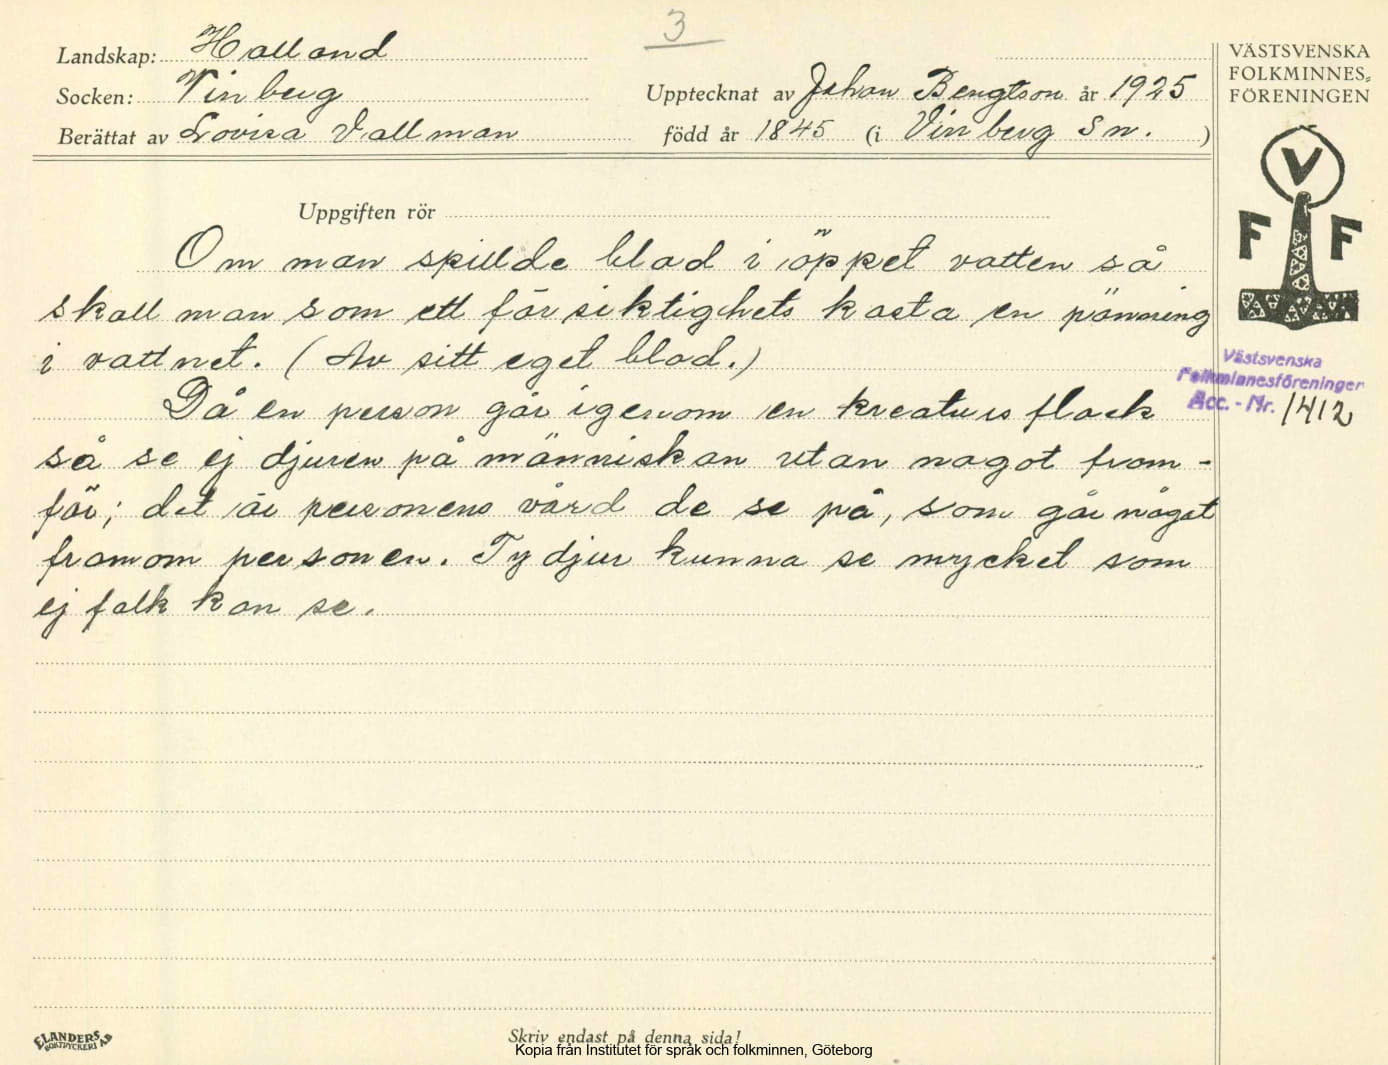 3
Landskap: Halland
Socken: Vinberg
Upptecknat av Johan Bengtson år 1925
Berättat av Lovisa Vallman
född år 1845 (i Vinberg Sn. )
VÄSTSVENSKA
FOLKMINNES-
FÖRENINGEN
V
F F
Uppgiften rör
Om man spillde blod i öppet vatten så
skall man som ett försiktighets kasta en pänning
i vattnet. (Av sitt eget blod.)
Då en person går igenom en kreaturs flock
så se ej djuren på människan utan nagot fram-
för; det är personens vård de se på, som går något
framom personen. Ty djur kunna se mycket som
ej folk kan se.
Västsvenska
Folkminnesföreningen
Acc. - Nr. 1412
ELANDERS
BOKTRYCKERI AB
Skriv endast på denna sida!
Kopia från Institutet för språk och folkminnen, Göteborg